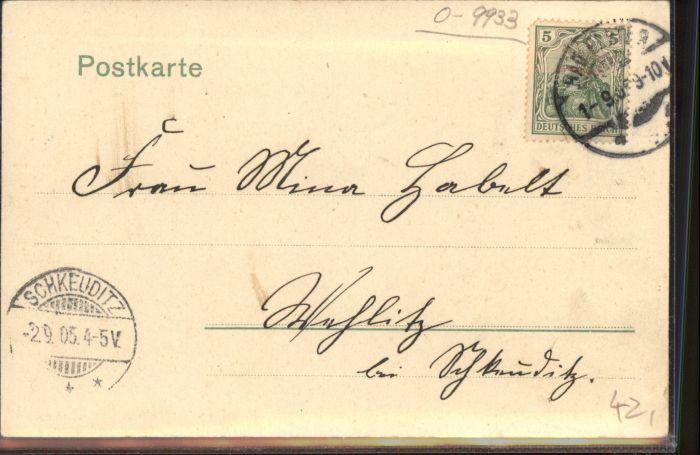 0-9933
Postkarte
5
DEUTSCHES REICH
1-9.05 9-10V
Frau Mina Habelt
Wehlitz
bei Schkeuditz.
SCHKEUDITZ
-2.9.05.4-5V.
* *
42,